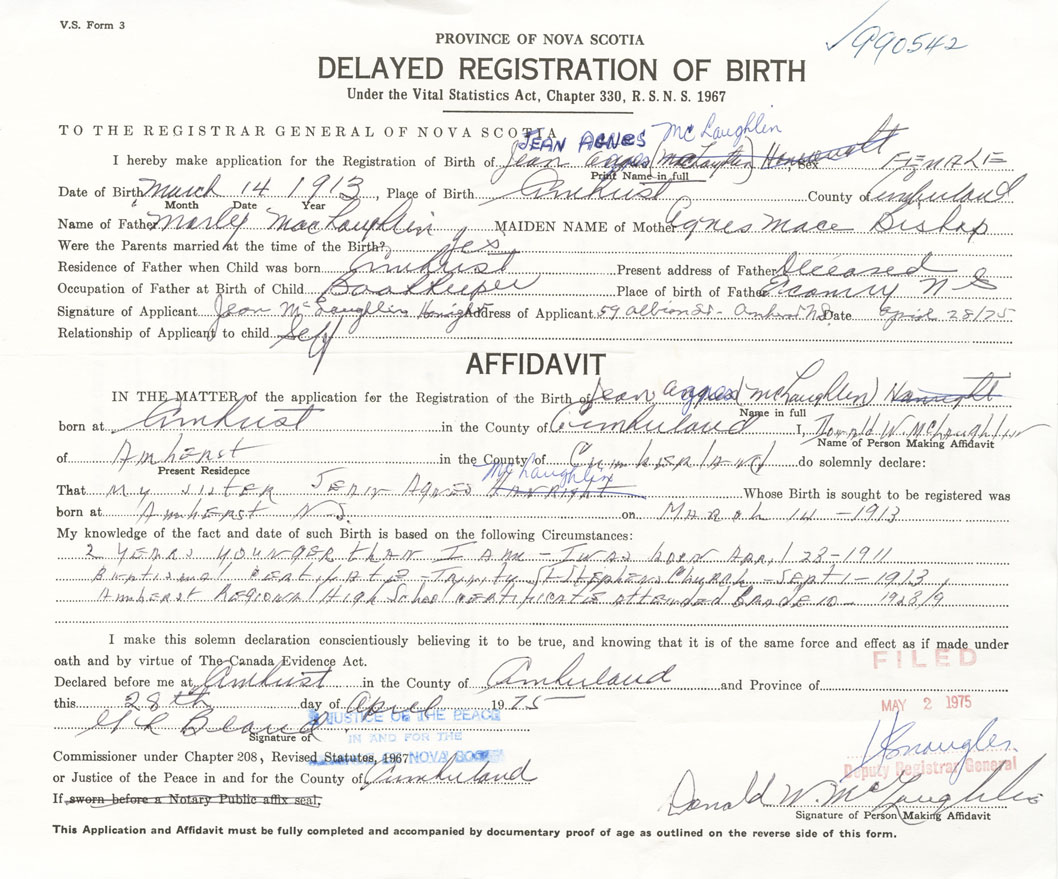 V.S. Form 3
✓990542
PROVINCE OF NOVA SCOTIA
DELAYED REGISTRATION OF BIRTH
Under the Vital Statistics Act, Chapter 330, R.S.N.S. 1967
TO THE REGISTRAR GENERAL OF NOVA SCOTIA
JEAN AGNES McLaughlin
I hereby make application for the Registration of Birth of Jean Agnes (McLaughlin) Sex FEMALE
Print Name in full
Date of Birth March 14 1913, Place of Birth Amherst County of Cumberland
Month Date Year
Name of Father Marley MacLaughlin MAIDEN NAME of Mother Agnes Mace Bishop
Were the Parents married at the time of the Birth? Yes
Residence of Father when Child was born Amherst Present address of Father Deceased
Occupation of Father at Birth of Child Bookkeeper Place of birth of Father Economy N S
Signature of Applicant Jean McLaughlin Address of Applicant 59 Albion St. Amherst N.S. Date April 28/75
Relationship of Applicant to child Self
AFFIDAVIT
IN THE MATTER of the application for the Registration of the Birth of Jean Agnes (McLaughlin)
Name in full
born at Amherst in the County of Cumberland I, Donald W. McLaughlin
Name of Person Making Affidavit
of Amherst in the County of Cumberland do solemnly declare:
Present Residence
McLaughlin
That my sister Jean Agnes Whose Birth is sought to be registered was
born at Amherst N.S. on March 14 - 1913
My knowledge of the fact and date of such Birth is based on the following Circumstances:
2 years younger than I am - I was born April 23 - 1911
Baptismal Certificate - Trinity St Stephens Church - Sept 1 - 1913,
Amherst Regional High School certificate attended Grade 10 - 1928/9
I make this solemn declaration conscientiously believing it to be true, and knowing that it is of the same force and effect as if made under
oath and by virtue of The Canada Evidence Act.
FILED
Declared before me at Amherst in the County of Cumberland and Province of
this 28th day of April 19 75
MAY 2 1975
JUSTICE OF THE PEACE
Signature of
IN AND FOR THE
OF NOVA SCOTIA
Commissioner under Chapter 208, Revised Statutes, 1967
Deputy Registrar General
or Justice of the Peace in and for the County of Cumberland
If sworn before a Notary Public affix seal.
Donald W. McLaughlin
Signature of Person Making Affidavit
This Application and Affidavit must be fully completed and accompanied by documentary proof of age as outlined on the reverse side of this form.